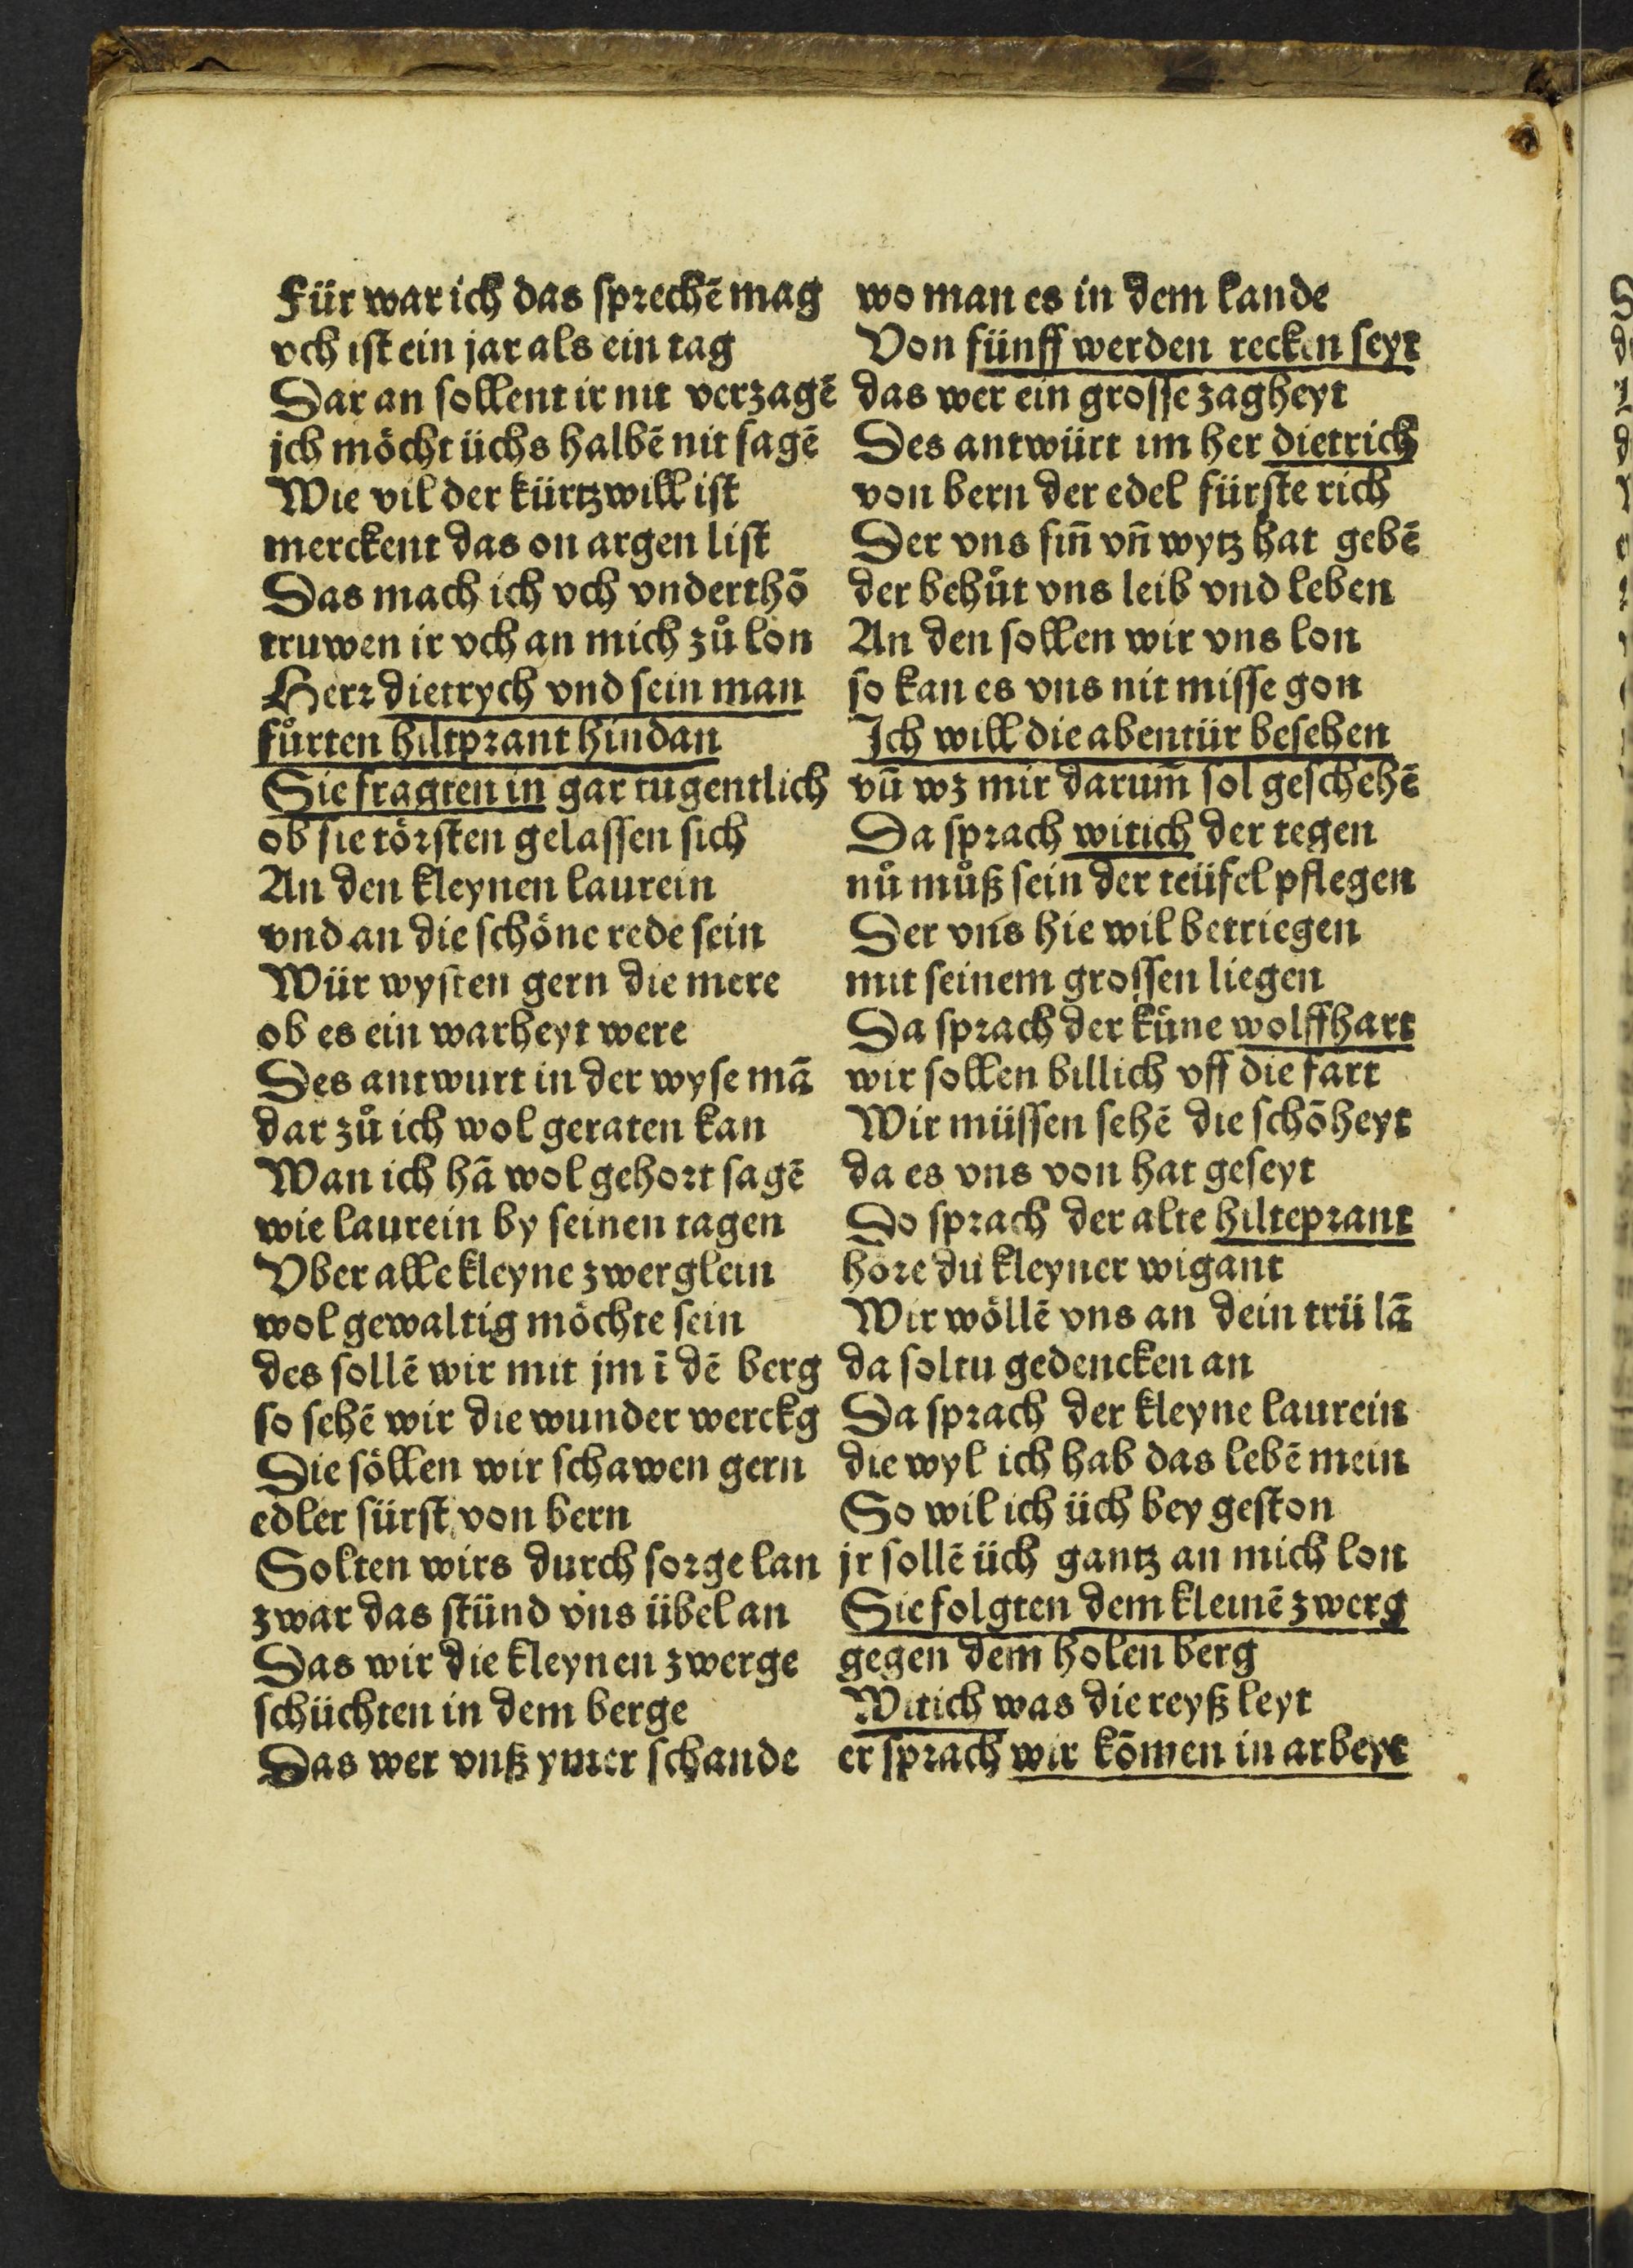 Für war ich das sprechē mag
vch ist ein jar als ein tag
Dar an sollent ir nit verzagē
jch möcht üchs halbē nit sagē
Wie vil der kürtzwill ist
merckent das on argen list
Das mach ich vch vnderthō
truwen ir vch an mich zů lon
Herr dietrych vnd sein man
fůrten hiltprant hindan
Sie fragten in gar tugentlich
ob sie törsten gelassen sich
An den kleynen laurein
vnd an die schöne rede sein
Wür wysten gern die mere
ob es ein warheyt were
Des antwurt in der wyse mā
dar zů ich wol geraten kan
Wan ich hā wol gehort sagē
wie laurein by seinen tagen
Vber alle kleyne zwerglein
wol gewaltig möchte sein
des sollē wir mit jm ī dē berg
so sehē wir die wunder werckg
Die söllen wir schawen gern
edler fürst von bern
Solten wirs durch sorge lan
zwar das stünd vns übel an
Das wir die kleynen zwerge
schüchten in dem berge
Das wer vnß ymer schande
wo man es in dem lande
Von fünff werden recken seyt
das wer ein grosse zagheyt
Des antwürt im her dietrich
von bern der edel fürste rich
Der vns sin̄ vn̄ wytz hat gebē
der behůt vns leib vnd leben
An den sollen wir vns lon
so kan es vns nit misse gon
Ich will die abentür besehen
vn̄ wz mir darum̄ sol geschehē
Da sprach witich der tegen
nů můß sein der teüfel pflegen
Der vns hie wil betriegen
mit seinem grossen liegen
Da sprach der kůne wolffhart
wir sollen billich vff die fart
Wir müssen sehē die schōheyt
da es vns von hat geseyt
Do sprach der alte hilteprant
höre du kleyner wigant
Wir wöllē vns an dein trü lā
da soltu gedencken an
Da sprach der kleyne laurein
die wyl ich hab das lebē mein
So wil ich üch bey geston
jr sollē üch gantz an mich lon
Sie folgten dem kleinē zwerg
gegen dem holen berg
Witich was die reyß leyt
er sprach wir kōmen in arbeyt